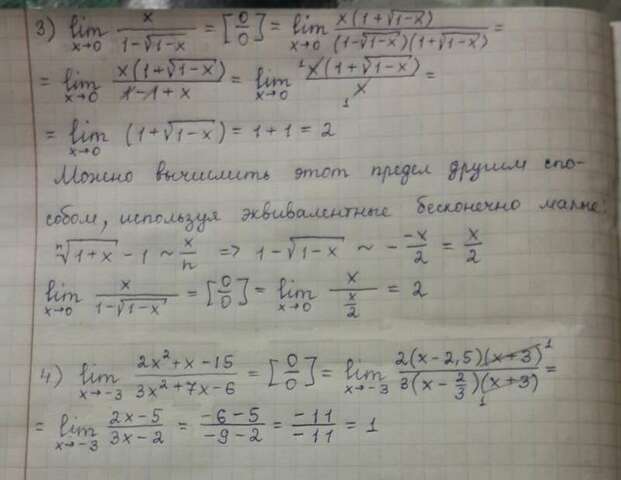 3) lim x→0 x/(1-√(1-x)) = [0/0] = lim x→0 x(1+√(1-x))/((1-√(1-x))(1+√(1-x))) =
= lim x→0 x(1+√(1-x))/(1-1+x) = lim x→0 x(1+√(1-x))/x =
= lim x→0 (1+√(1-x)) = 1+1 = 2
Можно вычислить этот предел другим спо-
собом, используя эквивалентные бесконечно малые:
ⁿ√(1+x) - 1 ~ x/n => 1-√(1-x) ~ - -x/2 = x/2
lim x→0 x/(1-√(1-x)) = [0/0] = lim x→0 x/(x/2) = 2
4) lim x→-3 (2x²+x-15)/(3x²+7x-6) = [0/0] = lim x→-3 2(x-2,5)(x+3)/(3(x-2/3)(x+3)) =
= lim x→-3 (2x-5)/(3x-2) = (-6-5)/(-9-2) = -11/-11 = 1